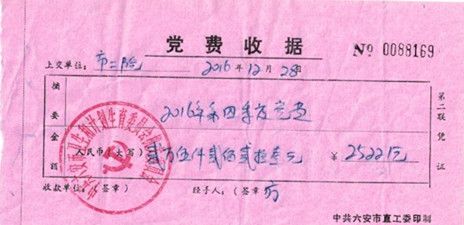 党费收据
№ 0088169
上交单位：市二院 2016年12月28日
摘要 2016年第四季度党费
金额 人民币（大写）贰万伍仟贰佰贰拾壹元 ¥25221元
收款单位：（签章） 经手人：（签章）
第二联凭证
中共六安市直工委印制